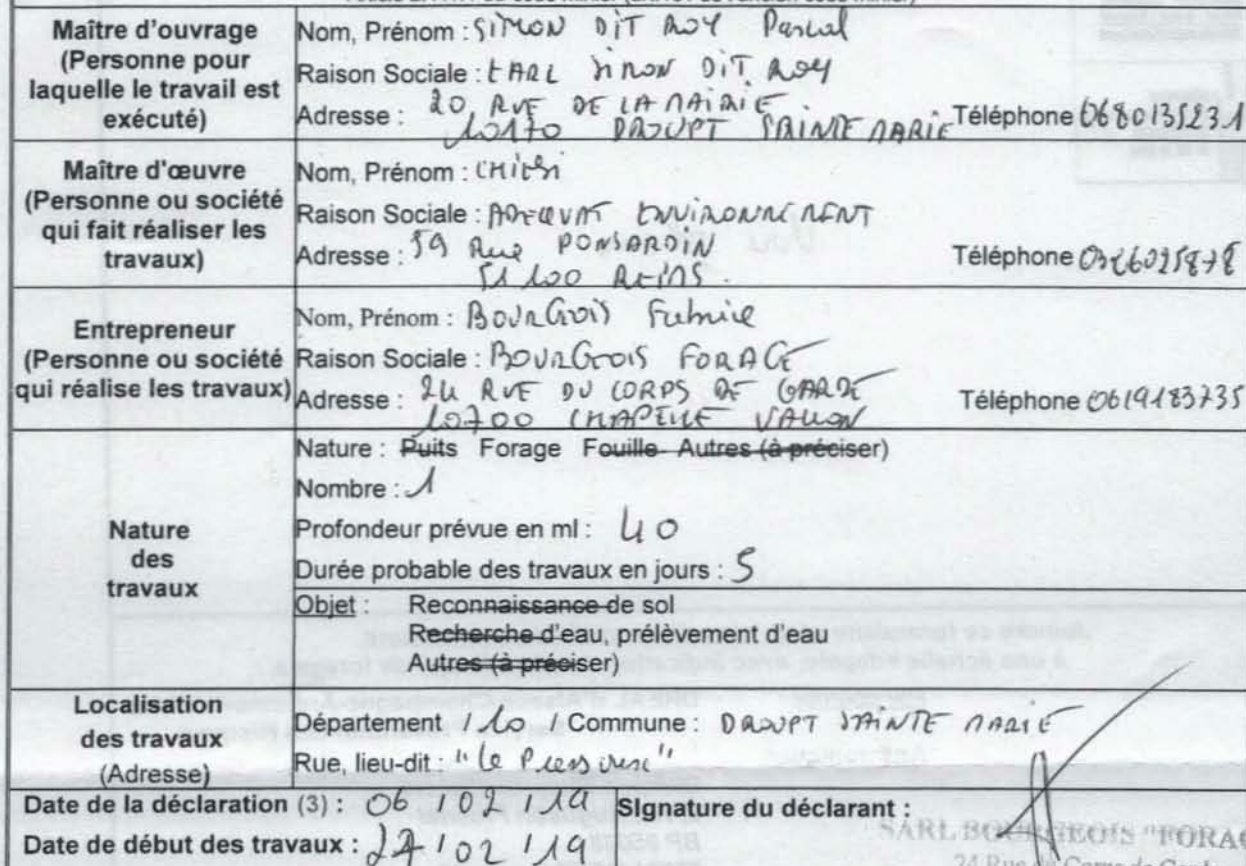 Maître d'ouvrage
(Personne pour
laquelle le travail est
exécuté)
Nom, Prénom : SIMON DIT ROY Pascal
Raison Sociale : EARL SIMON DIT ROY
Adresse : 20 RUE DE LA MAIRIE
10170 DROUPT SAINTE MARIE Téléphone 0680135231
Maître d'œuvre
(Personne ou société
qui fait réaliser les
travaux)
Nom, Prénom :
Raison Sociale : ADEQUAT ENVIRONNEMENT
Adresse : 59 Rue PONSARDIN
51100 REIMS. Téléphone 0326025878
Entrepreneur
(Personne ou société
qui réalise les travaux)
Nom, Prénom : BOURGEOIS Fabrice
Raison Sociale : BOURGEOIS FORAGE
Adresse : 24 RUE DU CORPS DE GARDE
10700 CHAPELLE VALLON Téléphone 0619183735
Nature
des
travaux
Nature : Puits Forage Fouille Autres (à préciser)
Nombre : 1
Profondeur prévue en ml : 40
Durée probable des travaux en jours : 5
Objet : Reconnaissance de sol
Recherche d'eau, prélèvement d'eau
Autres (à préciser)
Localisation
des travaux
(Adresse)
Département / 10 / Commune : DROUPT SAINTE MARIE
Rue, lieu-dit : "Le
Date de la déclaration (3) : 06 / 02 / 19 Signature du déclarant :
Date de début des travaux : 27 / 02 / 19
SARL BOURGEOIS "FORAG
24 Rue du Corps de Gard